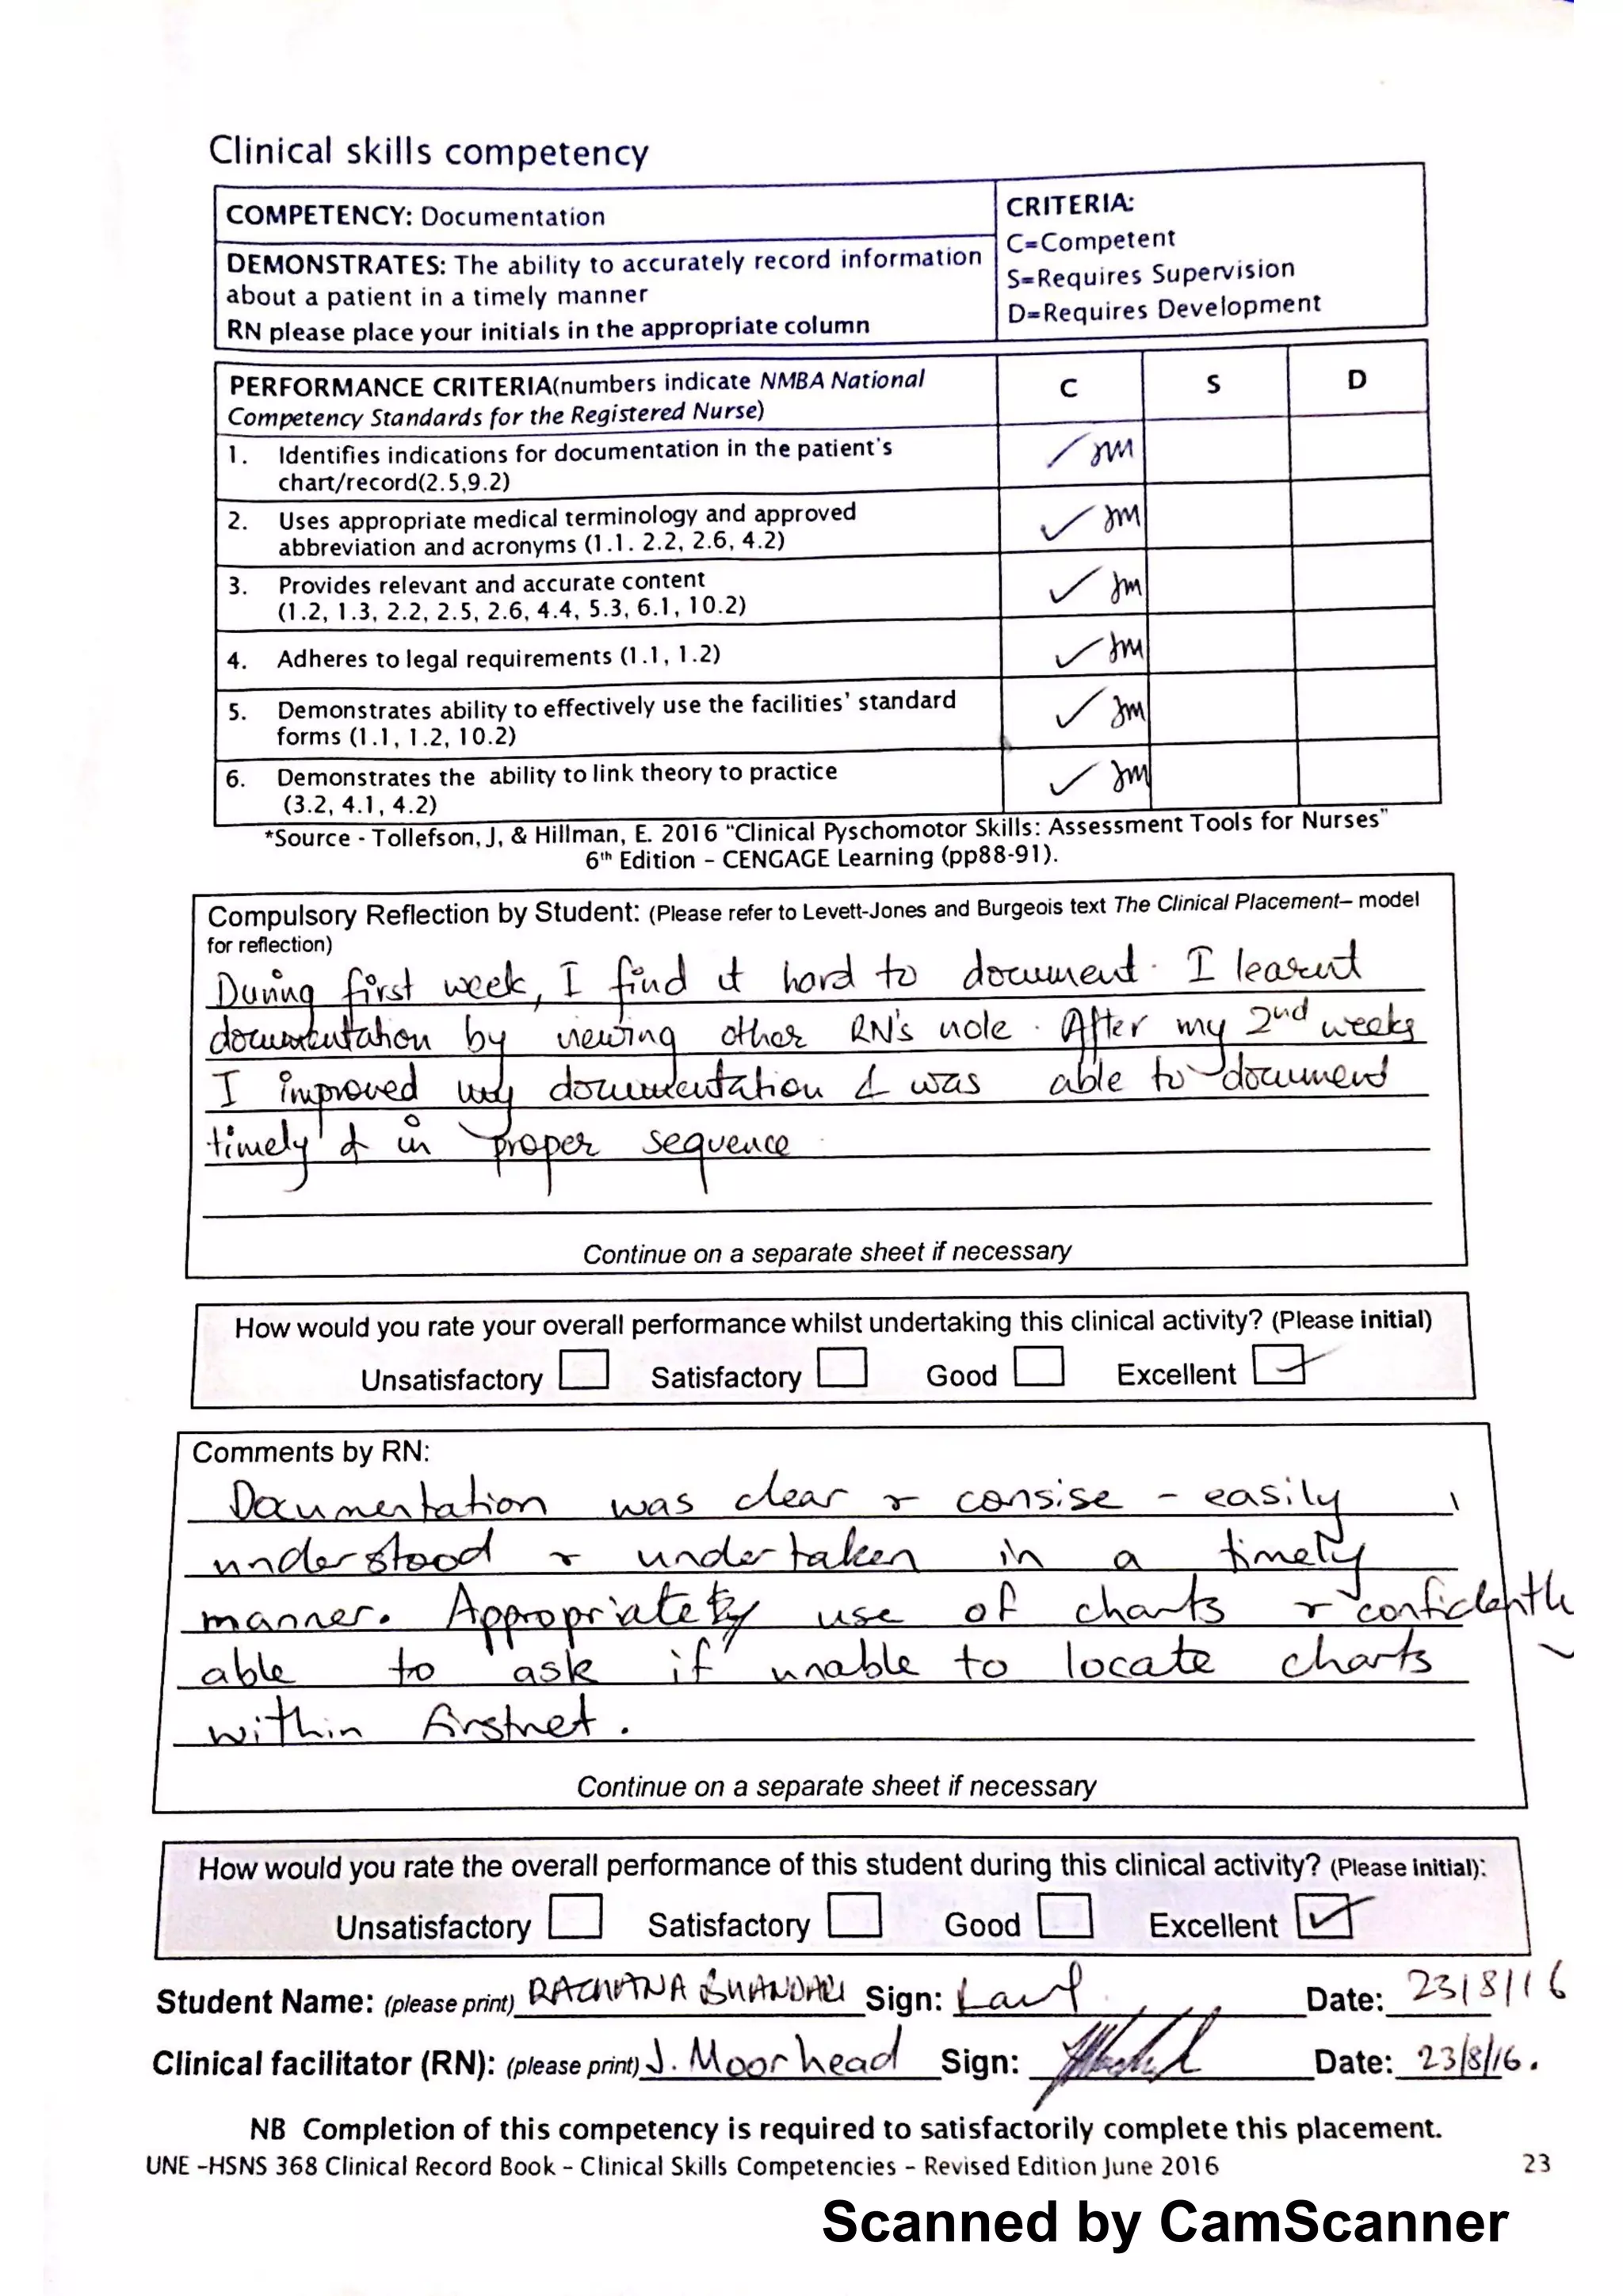 Clinical skills competency
COMPETENCY: Documentation
CRITERIA:
C=Competent
S=Requires Supervision
D=Requires Development
DEMONSTRATES: The ability to accurately record information
about a patient in a timely manner
RN please place your initials in the appropriate column
PERFORMANCE CRITERIA(numbers indicate NMBA National
Competency Standards for the Registered Nurse)
C S D
1. Identifies indications for documentation in the patient's
chart/record(2.5,9.2)
✓ JM
2. Uses appropriate medical terminology and approved
abbreviation and acronyms (1.1. 2.2, 2.6, 4.2)
✓ JM
3. Provides relevant and accurate content
(1.2, 1.3, 2.2, 2.5, 2.6, 4.4, 5.3, 6.1, 10.2)
✓ JM
4. Adheres to legal requirements (1.1, 1.2)
✓ JM
5. Demonstrates ability to effectively use the facilities' standard
forms (1.1, 1.2, 10.2)
✓ JM
6. Demonstrates the ability to link theory to practice
(3.2, 4.1, 4.2)
✓ JM
*Source - Tollefson, J, & Hillman, E. 2016 "Clinical Pyschomotor Skills: Assessment Tools for Nurses"
6th Edition - CENGAGE Learning (pp88-91).
Compulsory Reflection by Student: (Please refer to Levett-Jones and Burgeois text The Clinical Placement– model
for reflection)
During first week, I find it hard to document. I learnt
documentation by viewing other RN's note. After my 2nd weeks
I improved my documentation & was able to document
timely & in proper sequence.
Continue on a separate sheet if necessary
How would you rate your overall performance whilst undertaking this clinical activity? (Please initial)
Unsatisfactory Satisfactory Good Excellent ✓
Comments by RN:
Documentation was clear & consise - easily
understood & undertaken in a timely
manner. Appropriate use of charts & confidently
able to ask if unable to locate charts
within firstnet.
Continue on a separate sheet if necessary
How would you rate the overall performance of this student during this clinical activity? (Please initial):
Unsatisfactory Satisfactory Good Excellent ✓
Student Name: (please print) RACHANA BHANDARI Sign: Date: 23/8/16
Clinical facilitator (RN): (please print) J. Moorhead Sign: Date: 23/8/16.
NB Completion of this competency is required to satisfactorily complete this placement.
UNE -HSNS 368 Clinical Record Book - Clinical Skills Competencies - Revised Edition June 2016 23
Scanned by CamScanner